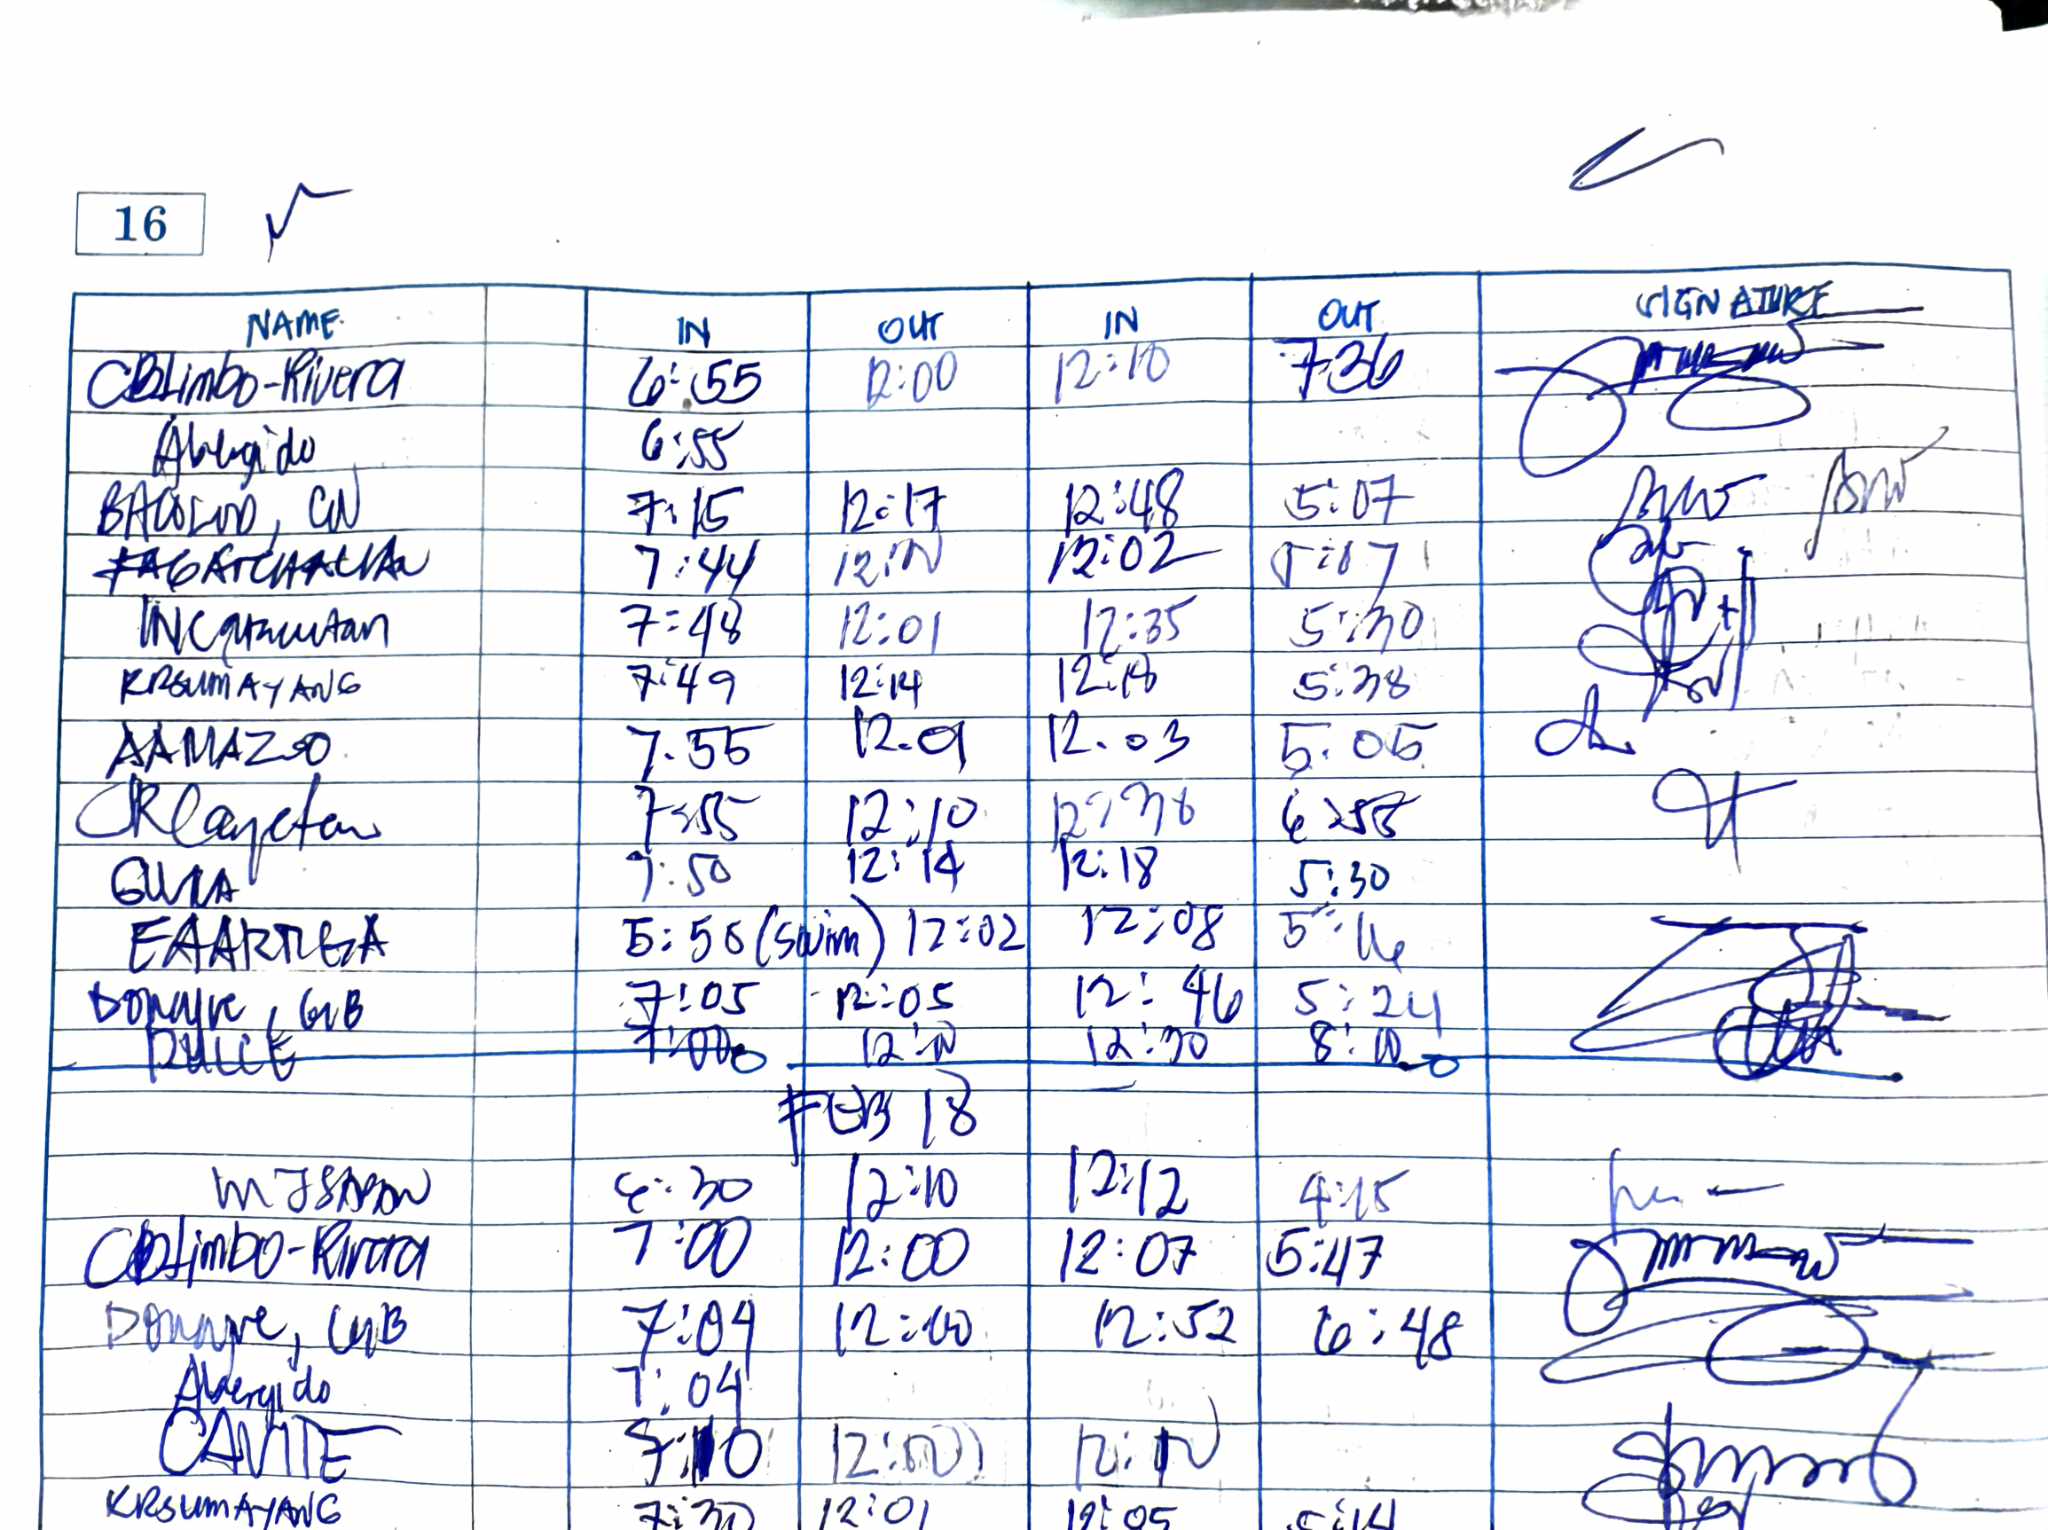 16
NAME IN OUT IN OUT SIGNATURE
CBLimbo-Rivera 6:55 12:00 12:10 7:36
Abergido 6:55
BACOLOD, GN 7:15 12:17 12:48 5:07
7:44 12:02
7:48 12:01 12:35 5:30
KRSUMAYANG 7:49 12:14 12:18 5:38
7.55 12.01 12.03 5:05
CRCayetan 7:55 12:10 12:38 6:55
7:50 12:14 12:18 5:30
EAARTEGA 5:50 (swim) 12:02 12:08 5:16
Donayre, GVB 7:05 12:05 12:46 5:24
DULCE 7:00 12:10 12:30 8:10
FEB 18
12:10 12:12 4:15
CBLimbo-Rivera 7:00 12:00 12:07 5:47
Donayre, GVB 7:04 12:00 12:52 6:48
Abergido 7:04
CAVITE 7:10
KRSUMAYANG 7:30 12:01 12:05 5:14